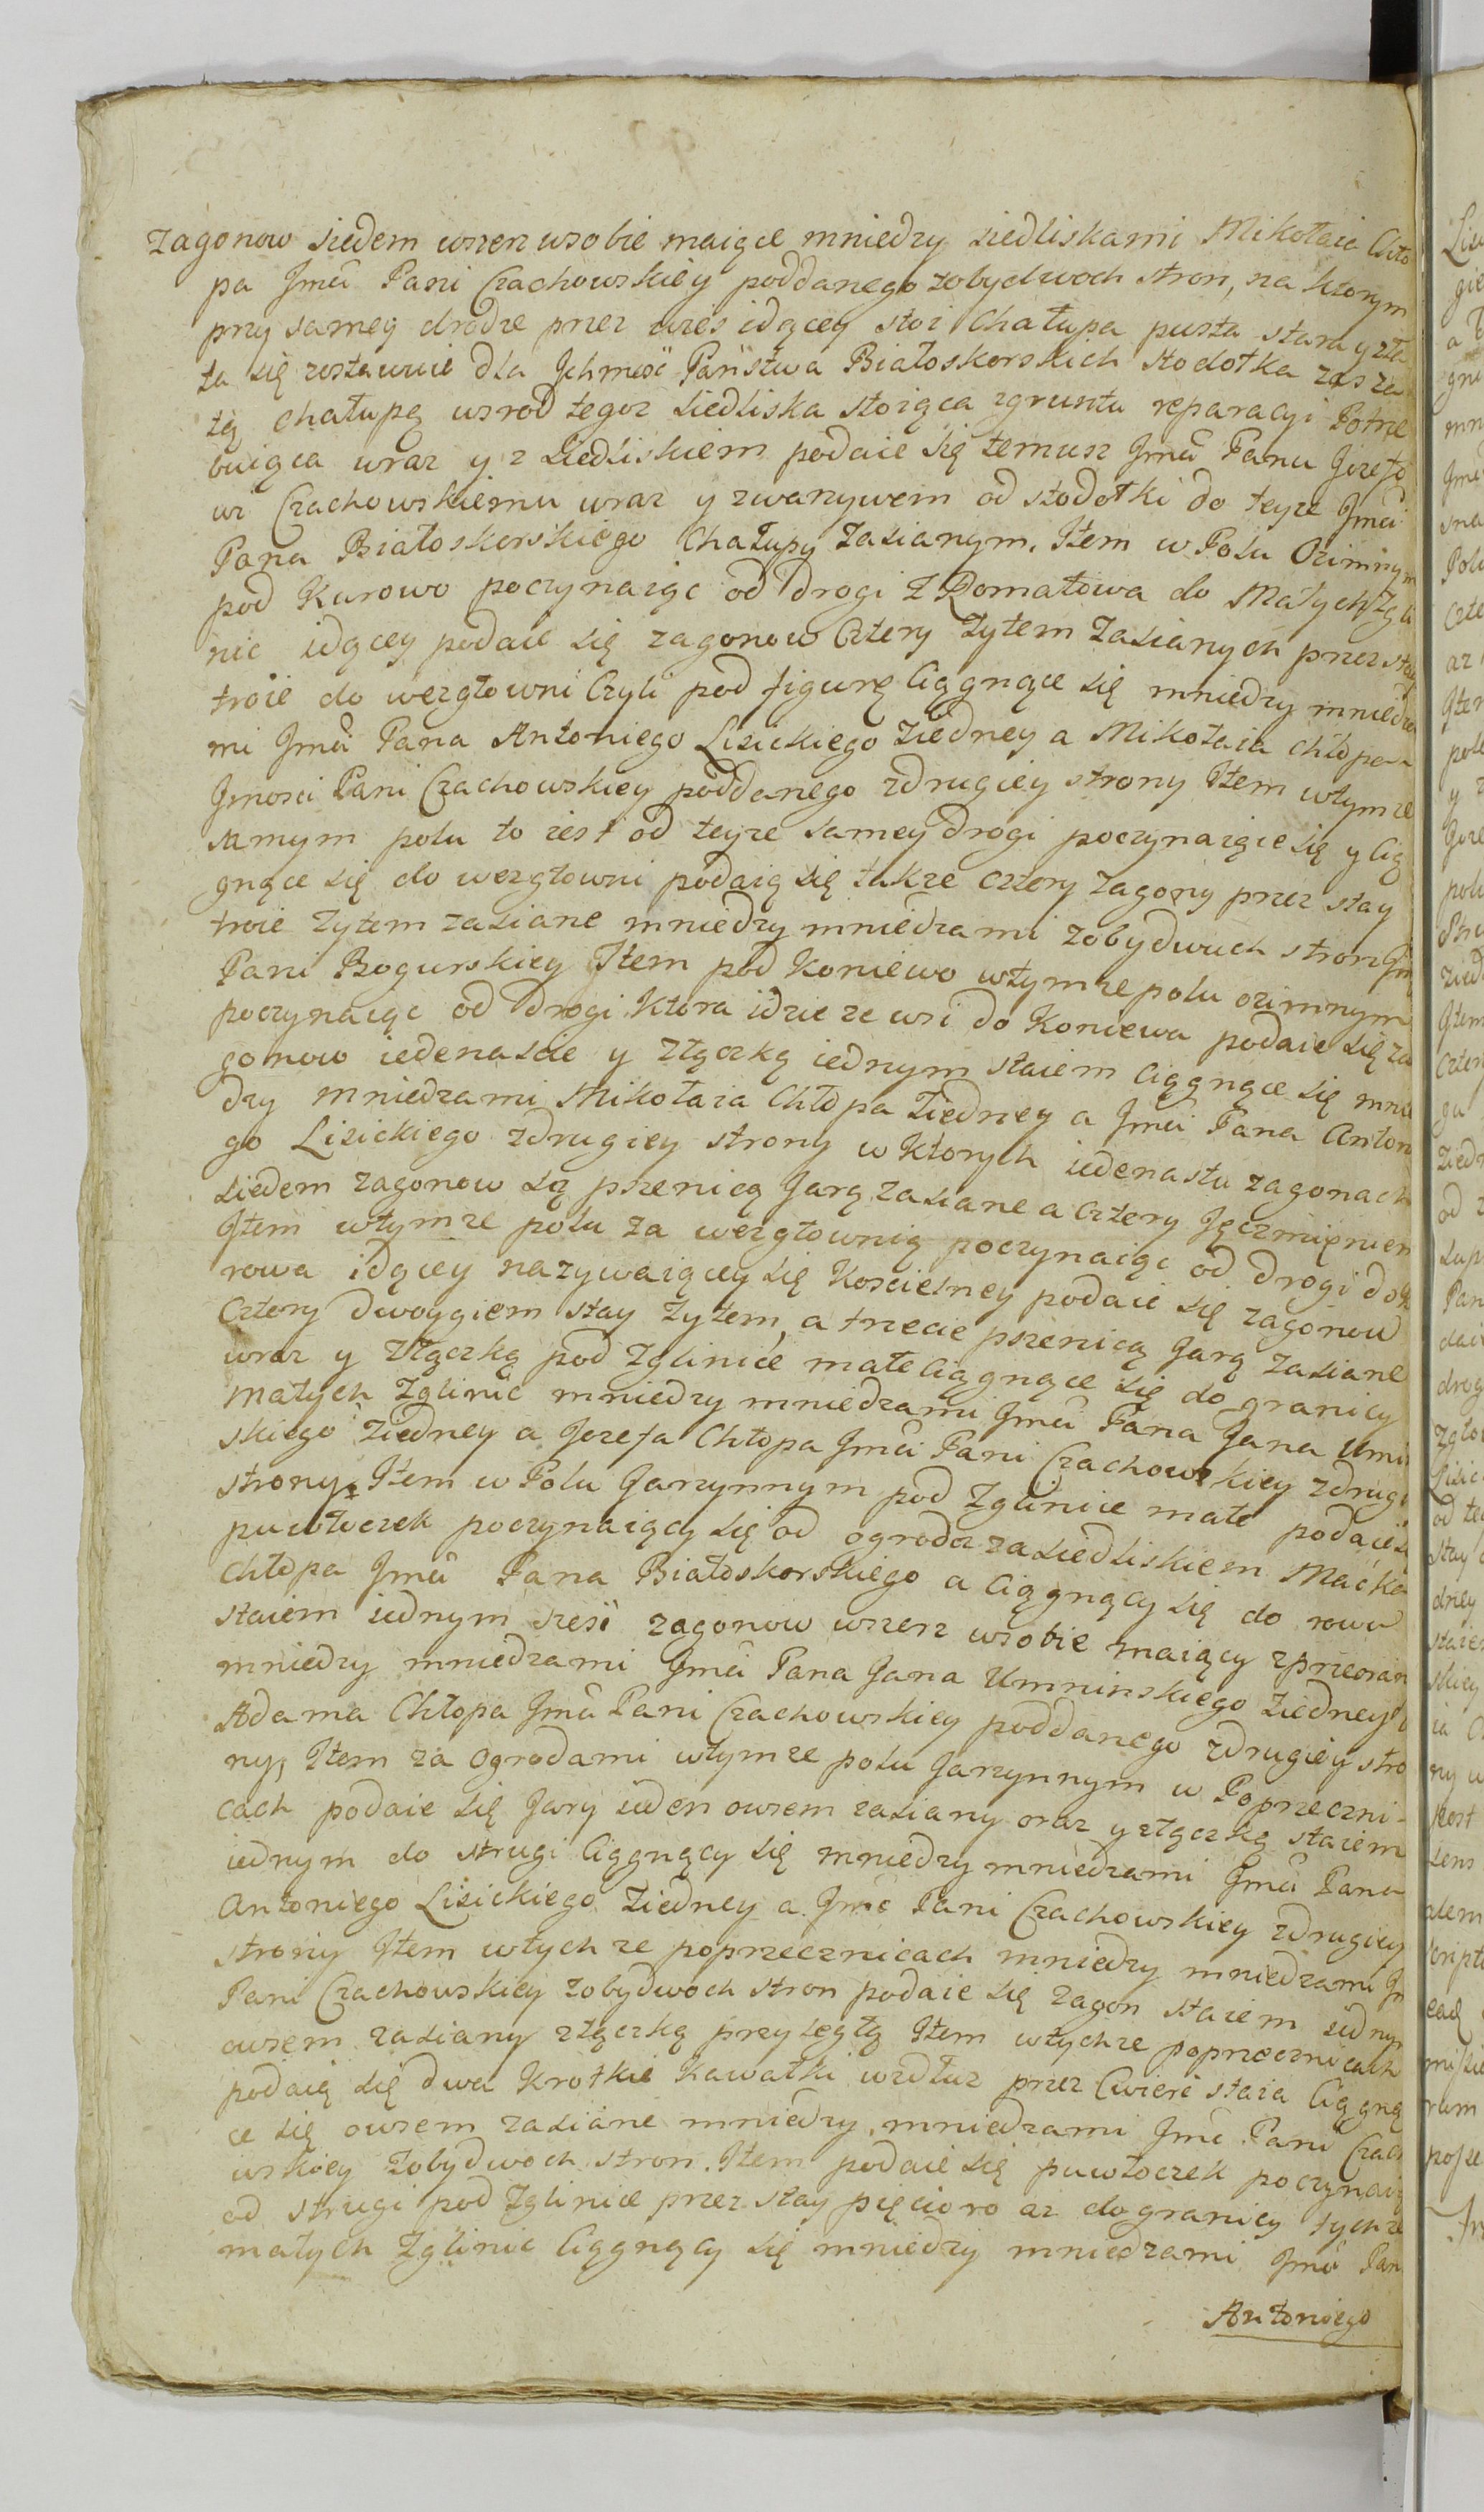 zagonow siedem wszerz wsobie maiące mniedzy siedliskami Mikołaia Chło
pa Jmći Pani Czachowskiey poddanego zobydwoch stron, na ktorym
przy samey drodze przez wies idącey stoi Chałupa pusta stara y zła
ta się zostawuie dla Jchmość Państwa Białoskorskich stodołka zas za
tą chałupą wsrod tegoz siedliska stoiąca zgruntu reparacyi Potrze
buiąca wraz y z siedliskiem podaie się temusz Jmći Panu Jozefo
wi Czachowskiemu wraz y zwarzywem od stodołki do teyze Jmći
Pana Białoskorskiego Chałupy zasianym. Item w Polu Oziminnym
pod Kurowo poczynaiąc od drogi z Romatowa do Małych Zgli
nic idącey podaie się zagonow Cztery żytem zasianych przez stay
troie do wezgłowni Czyli pod figurę Ciągnące się mniedzy mniedza
mi Jmći Pana Antoniego Lisickiego ziedney a Mikołaia Chłopa
Jmosci Pani Czachowskiey poddanego zdrugiey strony Item wtymze
samym polu to iest od teyze samey drogi poczynaiące się y Cią
gnące się do wezgłowni podaią się takze cztery zagony przez stay
troie zytem zasiane mniedzy mniedzami zobydwuch stron Jm
Pani Bogurskiey Item pod Koniewo wtymze polu ozimnym
poczynaiąc od drogi ktora idzie ze wsi do Koniewa podaie się za
gonow iedenascie y złączką iednym staiem Ciągnące się mnie
dzy mniedzami Mikołaia Chłopa ziedney a Jmći Pana Anton
go Lisickiego zdrugiey strony w ktorych iedenastu zagonach
siedem zagonow są pszenicą Jarą zasiane a cztery Jęczmieniem
Item wtymze polu za wezgłownią poczynaiąc od drogi do K
rowa idącey nazywaiącey się Koscielney podaie się zagonow
Cztery dwoygiem stay zytem, a trzecie pszenicą Jarą zasiane
wraz y złączką pod Zglinice małe Ciągnące się do granicy
małych Zglinic mniedzy mniedzami Jmći Pana Jana Umi
skiego ziedney a Jozefa Chłopa Jmći Pani Czachowskiey zdrugi
strony. Item w Polu Jarzynnym pod Zglinice małe podaie s
puwłoczek poczynaiący się od ogroda za siedliskiem Macka
Chłopa Jmći Pana Białoskorskiego a Ciągnący się do rowu
staiem iednym szesć zagonow wszerz wsobie maiący zprzeoran
mniedzy mniedzami Jmći Pana Jana Umninskiego ziedney
Adama Chłopa Jmći Pani Czachowskiey poddanego zdrugiey stro
ny, Item za Ogrodami wtymze polu Jarzynnym w Poprzeczni-
cach podaie się Jary ieden owsem zasiany oraz y złączką staiem
iednym do strugi Ciągnący się mniedzy mniedzami Jmći Pana
Antoniego Lisickiego ziedney a Jmć Pani Czachowskiey zdrugiey
strony Item wtychze poprzecznicach mniedzy mniedzami Jm
Pani Czachowskiey zobydwoch stron podaie się zagon staiem iednym
owsem zasiany złączką przyległą Item wtychze poprzecznicach
podaią się dwa krotkie kawałki wzdłuz przez Cwierć staia Ciągną
ce się owsem zasiane mniedzy mniedzami Jmć Pani Czach
wskiey zobydwoch stron. Item podaie się puwłoczek poczynaią
od strugi pod Zglinice przez stay pięcioro az do granicy tychze
małych Zglinic Ciągnący się mniedzy mniedzami Jmći Pan
Antoniego